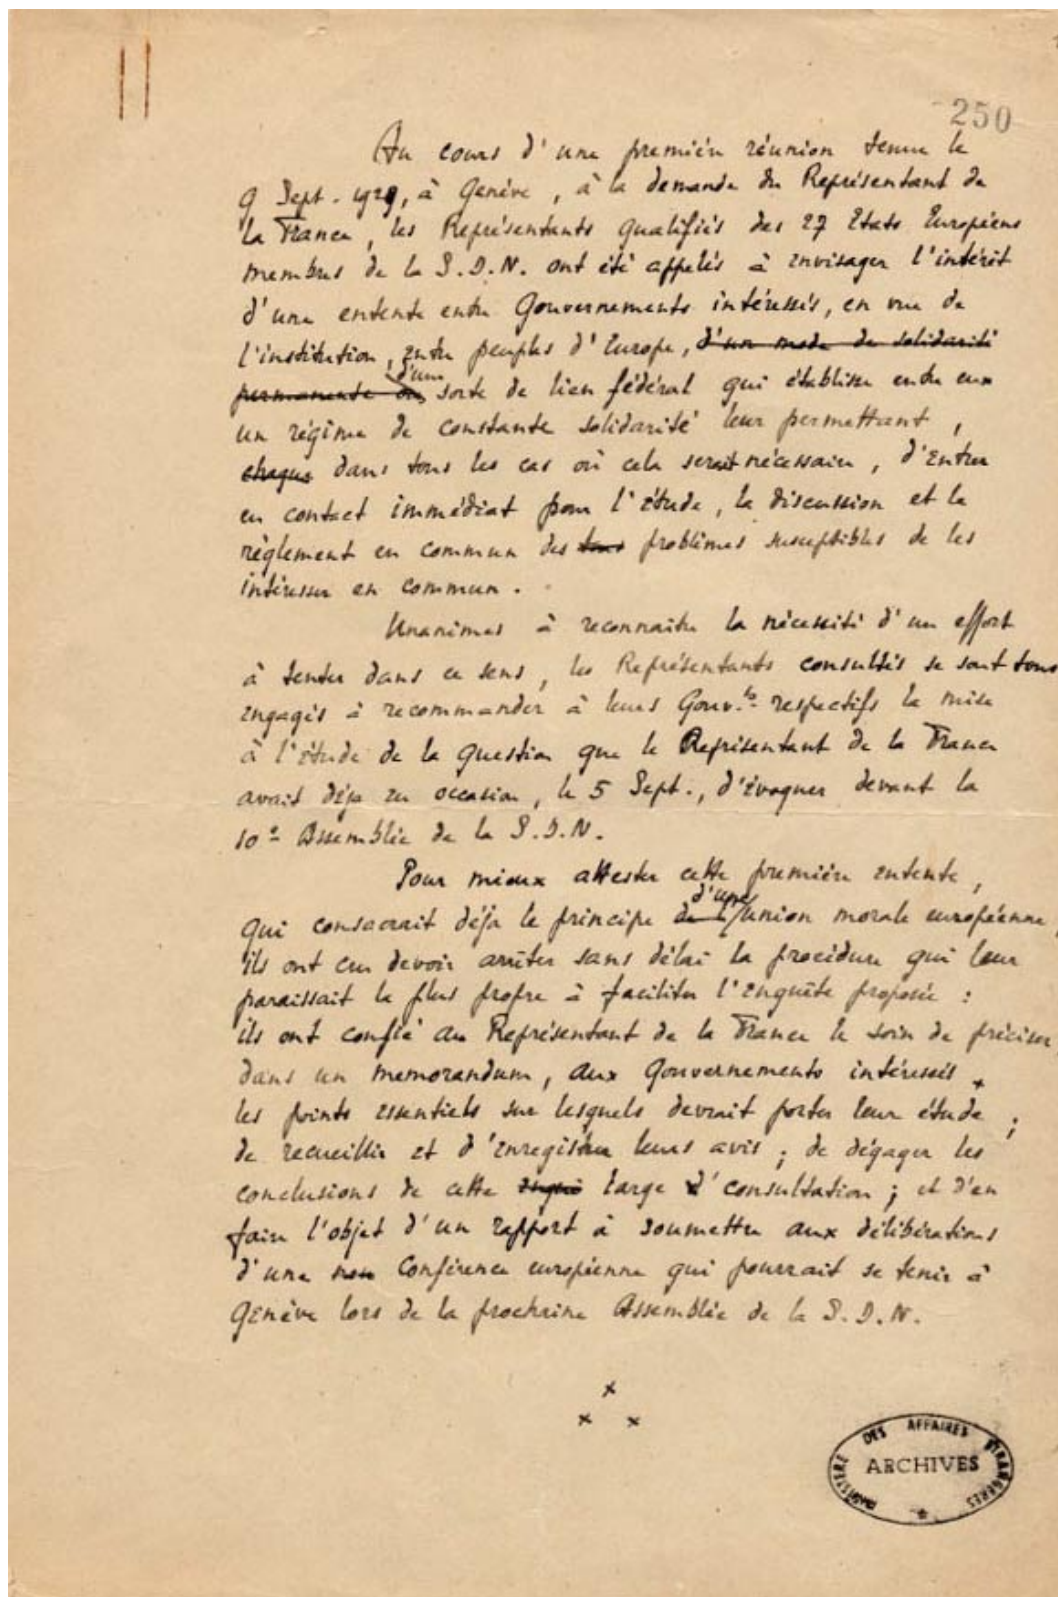 250
Au cours d'une première réunion tenue le
9 Sept. 1929, à Genève, à la demande du Représentant de
la France, les Représentants qualifiés des 27 Etats Européens
membres de la S.D.N. ont été appelés à envisager l'intérêt
d'une entente entre Gouvernements intéressés, en vue de
l'institution, entre peuples d'Europe, d'un mode de solidarité
permanente ou d'une sorte de lien fédéral qui établisse entre eux
un régime de constante solidarité leur permettant,
chaque dans tous les cas où cela serait nécessaire, d'entrer
en contact immédiat pour l'étude, la discussion et le
règlement en commun des tous problèmes susceptibles de les
intéresser en commun.
Unanimes à reconnaître la nécessité d'un effort
à tenter dans ce sens, les Représentants consultés se sont tous
engagés à recommander à leurs Gouv.ts respectifs la mise
à l'étude de la question que le Représentant de la France
avait déjà eu occasion, le 5 Sept., d'évoquer devant la
10e Assemblée de la S.D.N.
Pour mieux attester cette première entente,
qui consacrait déjà le principe de l' d'une union morale européenne,
ils ont cru devoir arrêter sans délai la procédure qui leur
paraissait la plus propre à faciliter l'enquête proposée :
ils ont confié au Représentant de la France le soin de préciser
dans un memorandum, aux Gouvernements intéressés,
les points essentiels sur lesquels devrait porter leur étude ;
de recueillir et d'enregistrer leurs avis ; de dégager les
conclusions de cette large consultation ; et d'en
faire l'objet d'un rapport à soumettre aux délibérations
d'une Conférence européenne qui pourrait se tenir à
Genève lors de la prochaine Assemblée de la S.D.N.
x
x x
MINISTÈRE DES AFFAIRES ETRANGÈRES
ARCHIVES